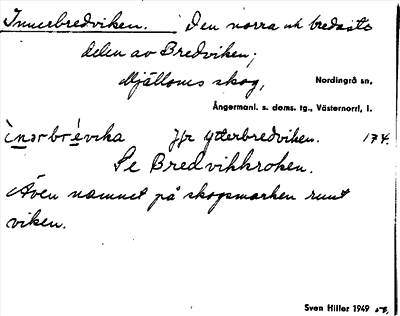 Innerbredviken. Den norra och bredaste
delen av Bredviken;
Mjälloms skog,
Nordingrå sn,
Ångermanl. s. doms. tg., Västernorrl. l.
ìnərbrévika Jfr Ytterbredviken. 174.
Se Bredvikkroken.
Även namnet på skogsmarken runt
viken.
Sven Hiller 1949